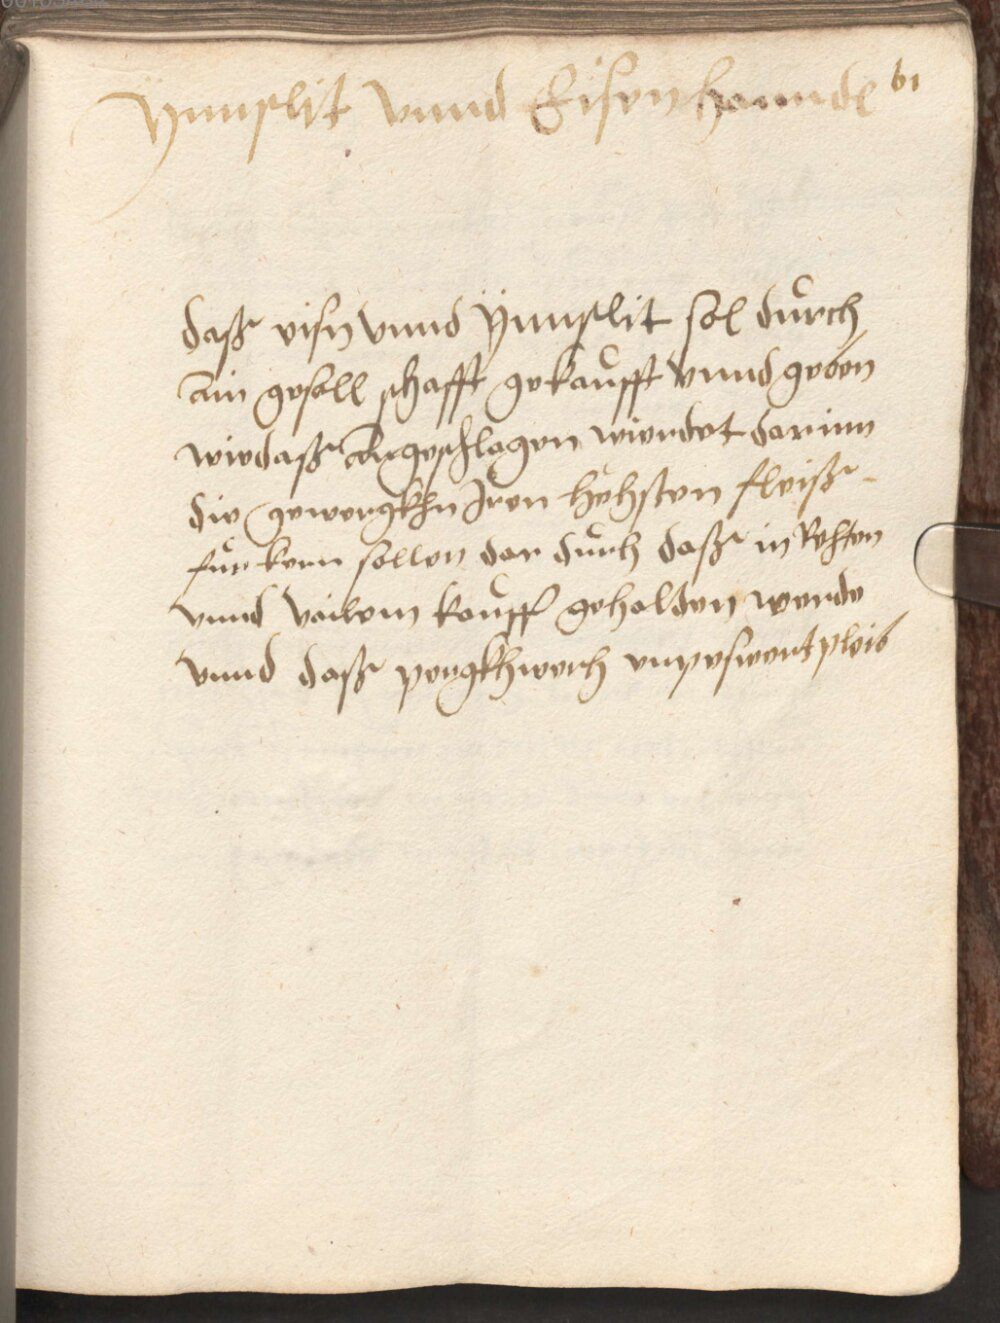 61
Ÿnnslit vnnd Eisenhanndl
daß eisn vnnd Ÿnnslit sol durch
ain gesell schafft gekaufft vnnd geben
wie daß Angeschlagen wierdet darinn
die gewergkhn Iren hehsten fleiß
furkern sollen dar durch daß in Rehten
vnnd vailem kauff gehalden werde
vnnd daß pergkhwerch vnpeswert pleib